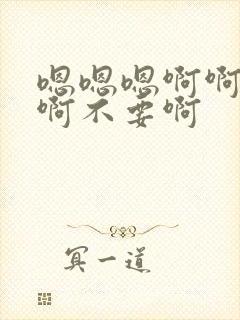 嗯嗯嗯啊啊
啊不要啊
冥一道